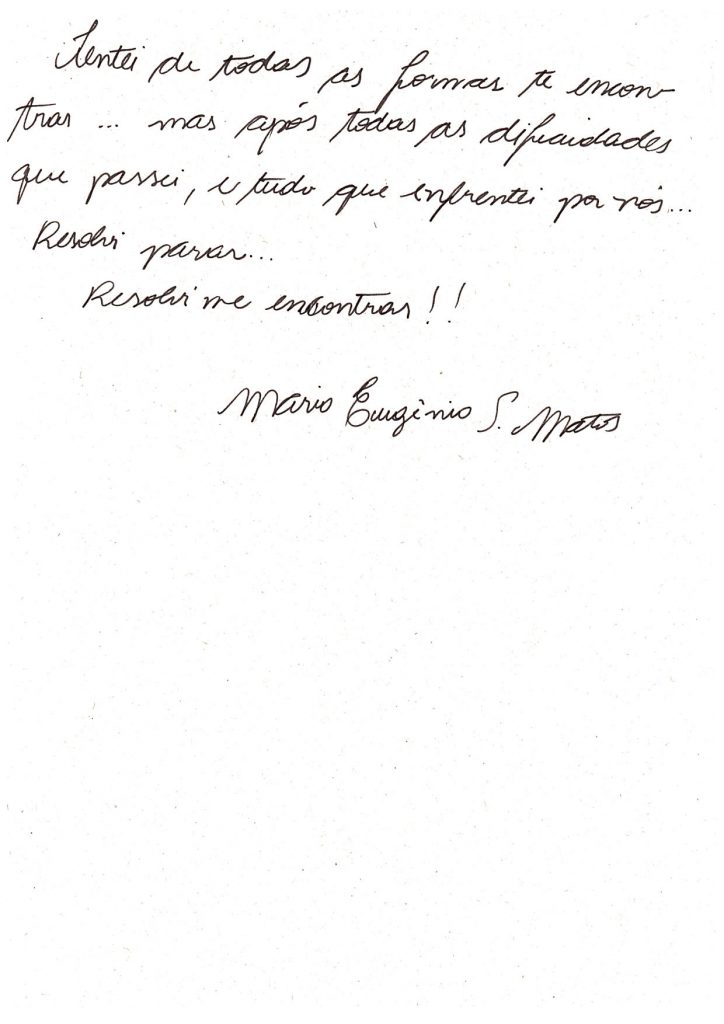 Tentei de todas as formas te encon-
trar ... mas após todas as dificuldades
que passei, e tudo que enfrentei por nós...
Resolvi parar...
Resolvi me encontrar!!
Mario Eugênio S. Matos